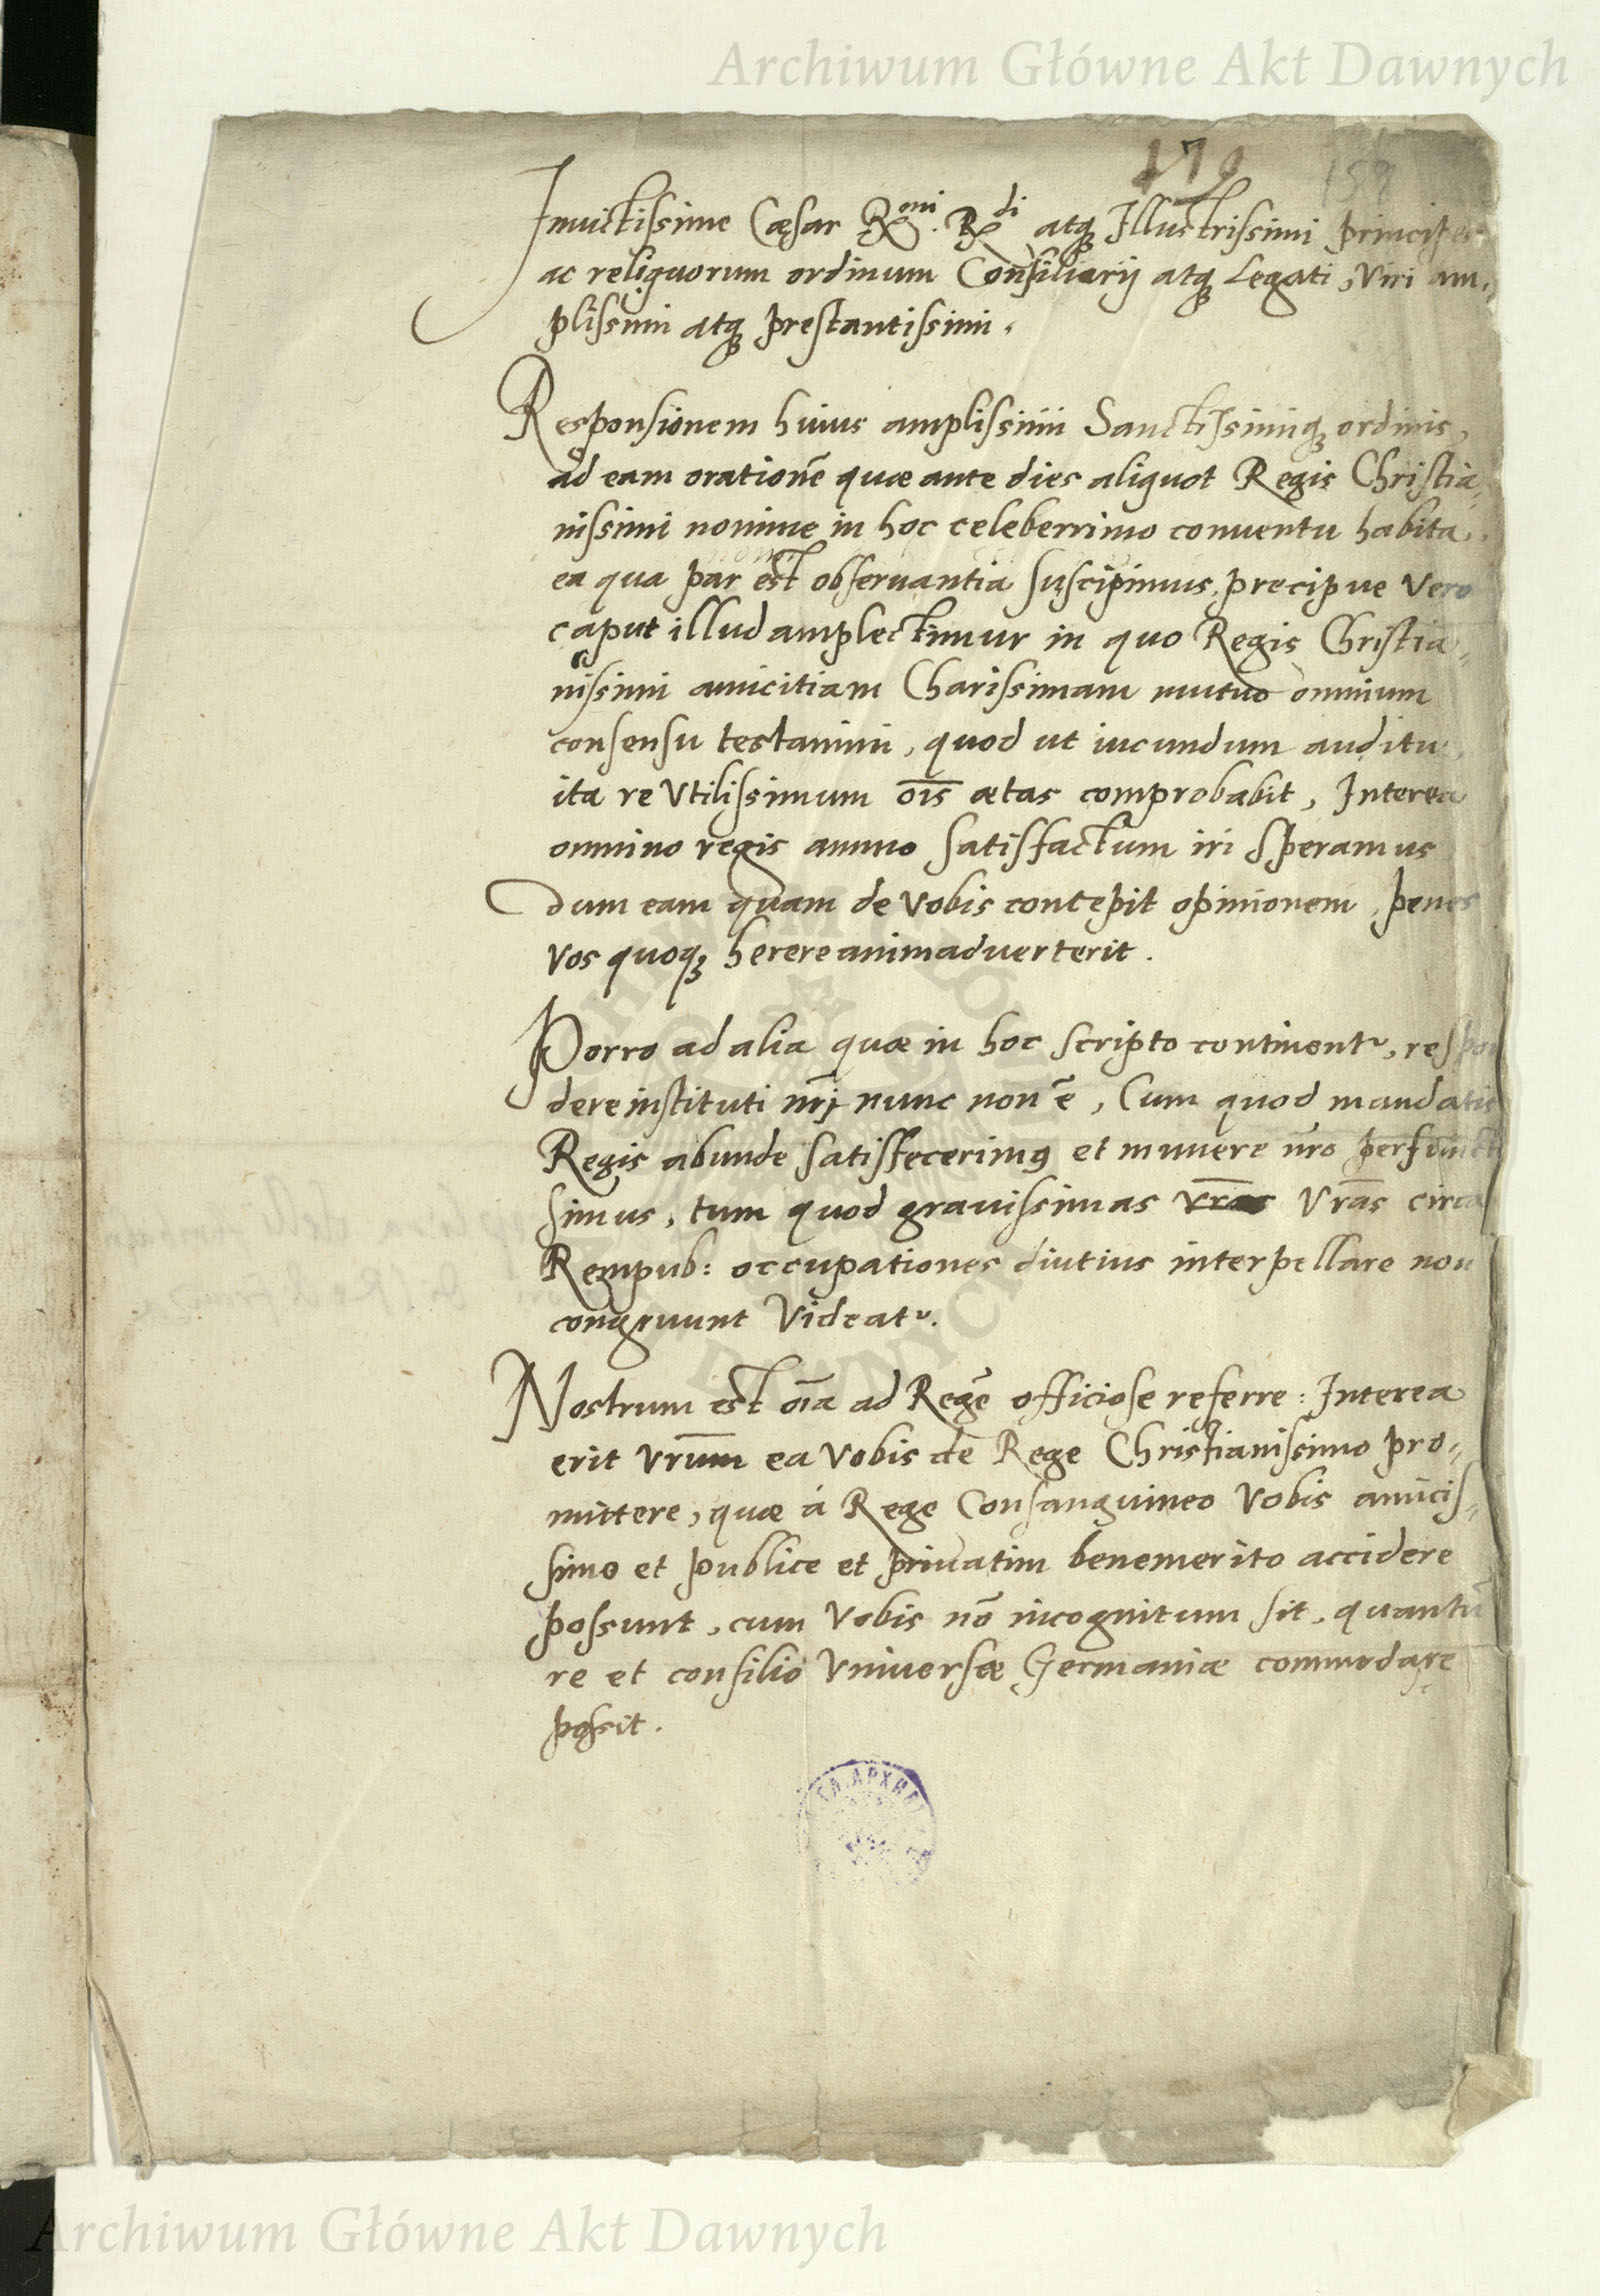 Archiwum Główne Akt Dawnych
179
159
Invictissime Cæsar Rmi. Rdi atq Illustrissimi principes
ac reliquorum ordinum Consiliarij atq Legati, Viri am-
plissimi atq prestantissimi.
Responsionem huius amplissimi Sanctissimiq ordinis,
ad eam orationē quæ ante dies aliquot Regis Christia-
nissimi nomine in hoc celeberrimo conventu habita,
ea qua par est observantia suscipimus, precipue Vero
caput illud amplectimur in quo Regis Christia-
nissimi amicitiam Charissimam mutuo omnium
consensu testamini, quod ut iucundum auditu,
ita re Vtilissimum oīs ætas comprobabit, Interea
omnino regis animo satisfactum iri speramus
dum eam quam de Vobis concepit opinionem, penes
Vos quoq herere animadverterit.
Porro ad alia quæ in hoc scripto continentr, respon
dere instituti nrī nunc non ē, Cum quod mandatis
Regis abunde satisfecerimus et munere nro perfuncti
simus, tum quod gravissimas vras Vras circa
Rempub: occupationes diutius interpellare non
congruunt Videatr.
Nostrum est oīa ad Regē officiose referre: Interea
erit Vrum ea Vobis de Rege Christianissimo pro-
mittere, quæ á Rege Consanguineo Vobis amicis-
simo et publice et privatim benemerito accidere
possunt, cum Vobis nō incognitum sit, quantū
re et consilio Vniversæ Germaniæ commodare
possit.
Archiwum Główne Akt Dawnych